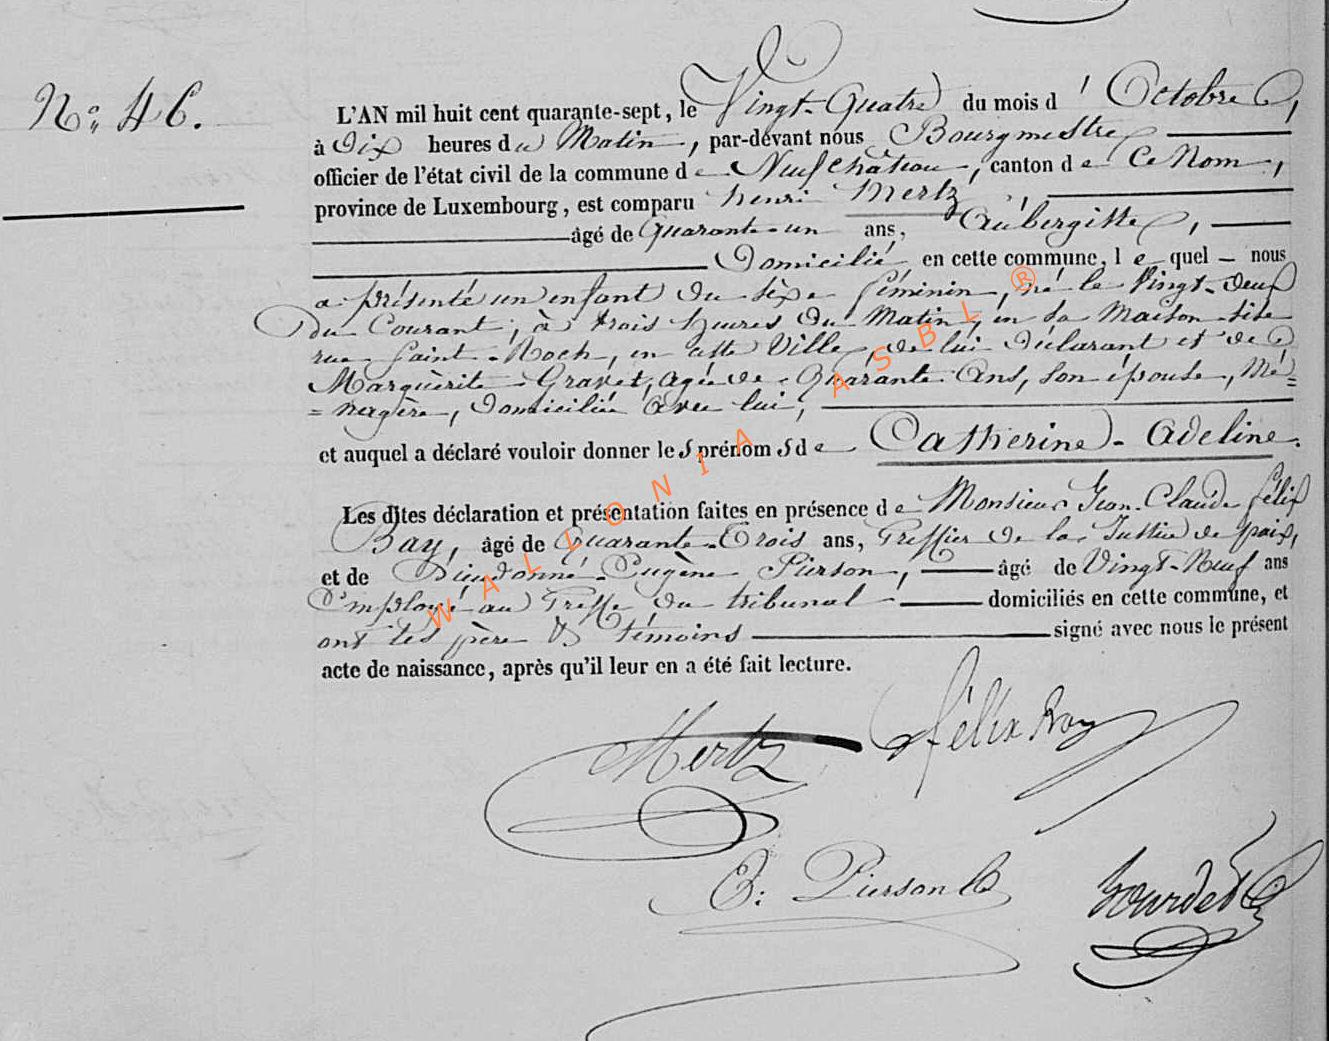 N° 46.
L'AN mil huit cent quarante-sept, le Vingt-Quatre du mois d' Octobre,
à Dix heures du Matin, par-devant nous Bourgmestre
officier de l'état civil de la commune de Neufchâteau, canton de Ce Nom,
province de Luxembourg, est comparu henri Mertz,
âgé de Quarante-un ans, Aubergiste,
Domicilié en cette commune, lequel nous
a présenté un enfant du sèxe féminin, né le Vingt-deux
du Courant, à trois heures du Matin, en sa Maison sise
rue Saint-Roch, en cette Ville, de lui déclarant et de
Marguèrite Gravet, agée de Quarante Ans, son épouse, Mé=
=nagère, domiciliée avec lui,
et auquel a déclaré vouloir donner les prénoms de Catherine-Adeline.
Les dites déclaration et présentation faites en présence de Monsieur Jean-Claude félix
Bay, âgé de Quarante-Trois ans, Greffier de la Justice de paix,
et de Dieudonné-Eugène Pierson, âgé de Vingt-Neuf ans
Employé au Greffe du tribunal domiciliés en cette commune, et
ont les père & témoins signé avec nous le présent
acte de naissance, après qu'il leur en a été fait lecture.
Mertz félix Bay
E: Pierson
Bourdet
WALLONIA ASBL ®